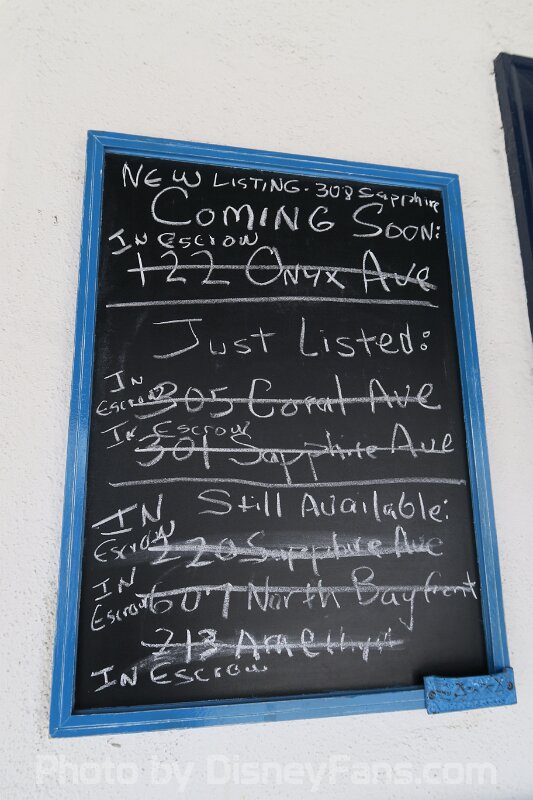 NEW LISTING - 308 Sapphire
COMING SOON:
IN ESCROW
122 ONYX Ave
Just Listed:
IN
ESCROW
305 Coral Ave
IN ESCROW
301 Sapphire Ave
Still Available:
IN
Escrow
220 Sapphire Ave
IN
Escrow
607 North Bay front
213
IN ESCROW
Photo by DisneyFans.com